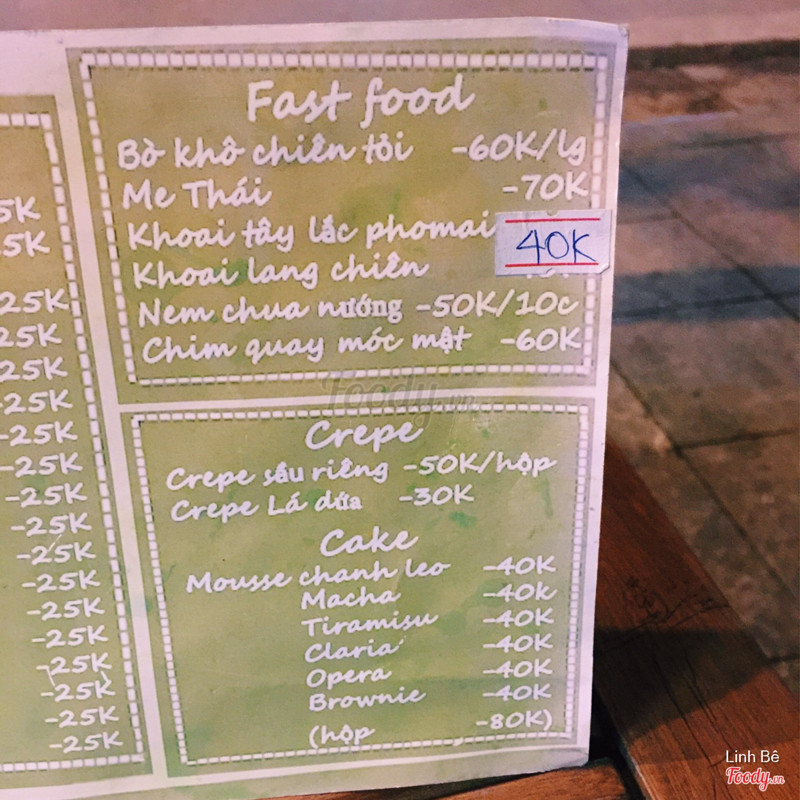 5K
5K
25K
25K
25K
-25K
-25K
-25K
-25K
-25K
-25K
-25K
-25K
-25K
-25K
-25K
-25K
-25K
Fast food
Bò khô chiên tỏi -60K/lg
Me Thái -70K
Khoai tây lắc phomai
40K
Khoai lang chiên
Nem chua nướng -50K/10c
Chim quay móc mật -60K
Foody.vn
Crepe
Crepe sầu riêng -50K/hộp
Crepe Lá dứa -30K
Cake
Mousse chanh leo -40K
Macha -40k
Tiramisu -40K
Claria -40K
Opera -40K
Brownie -40K
(hộp -80K)
Linh Bê
Foody.vn